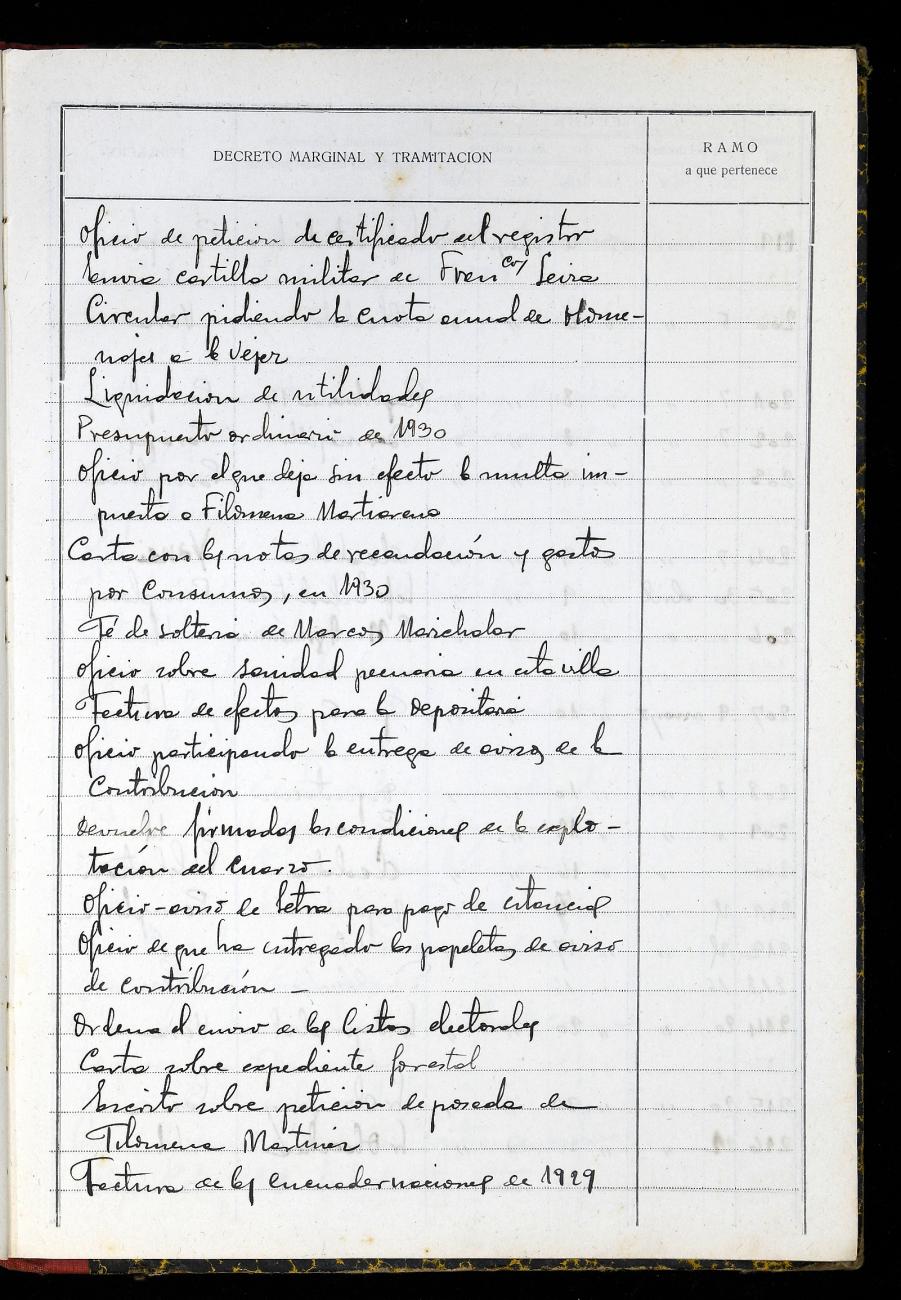 DECRETO MARGINAL Y TRAMITACION
RAMO
a que pertenece
Oficio de peticion de certificado del registro
Envia cartilla militar de Franco/ Leiza
Circular pidiendo la cuota anual de Home-
najes a la Vejez
Liquidacion de utilidades
Presupuesto ordinario de 1930
Oficio por el que deja sin efecto la multa im-
puesta a Filomena Martiarena
Carta con las notas de recaudación y gastos
por Consumos, en 1930
Fé de solteria de Marcos Maichalar
Oficio sobre sanidad pecuaria en esta villa
Factura de efectos para la Depositaria
Oficio participando la entrega de avisos de la
Contribucion
Devuelve firmadas las condiciones de la explo-
tación del cuarzo.
Oficio-aviso de letra para pago de estancias
Oficio de que ha entregado las papeletas de aviso
de contribución -
Ordena el envio de las listas electorales
Carta sobre expediente forestal
Escrito sobre peticion de posada de
Filomena Martinez
Factura de las encuadernaciones de 1929